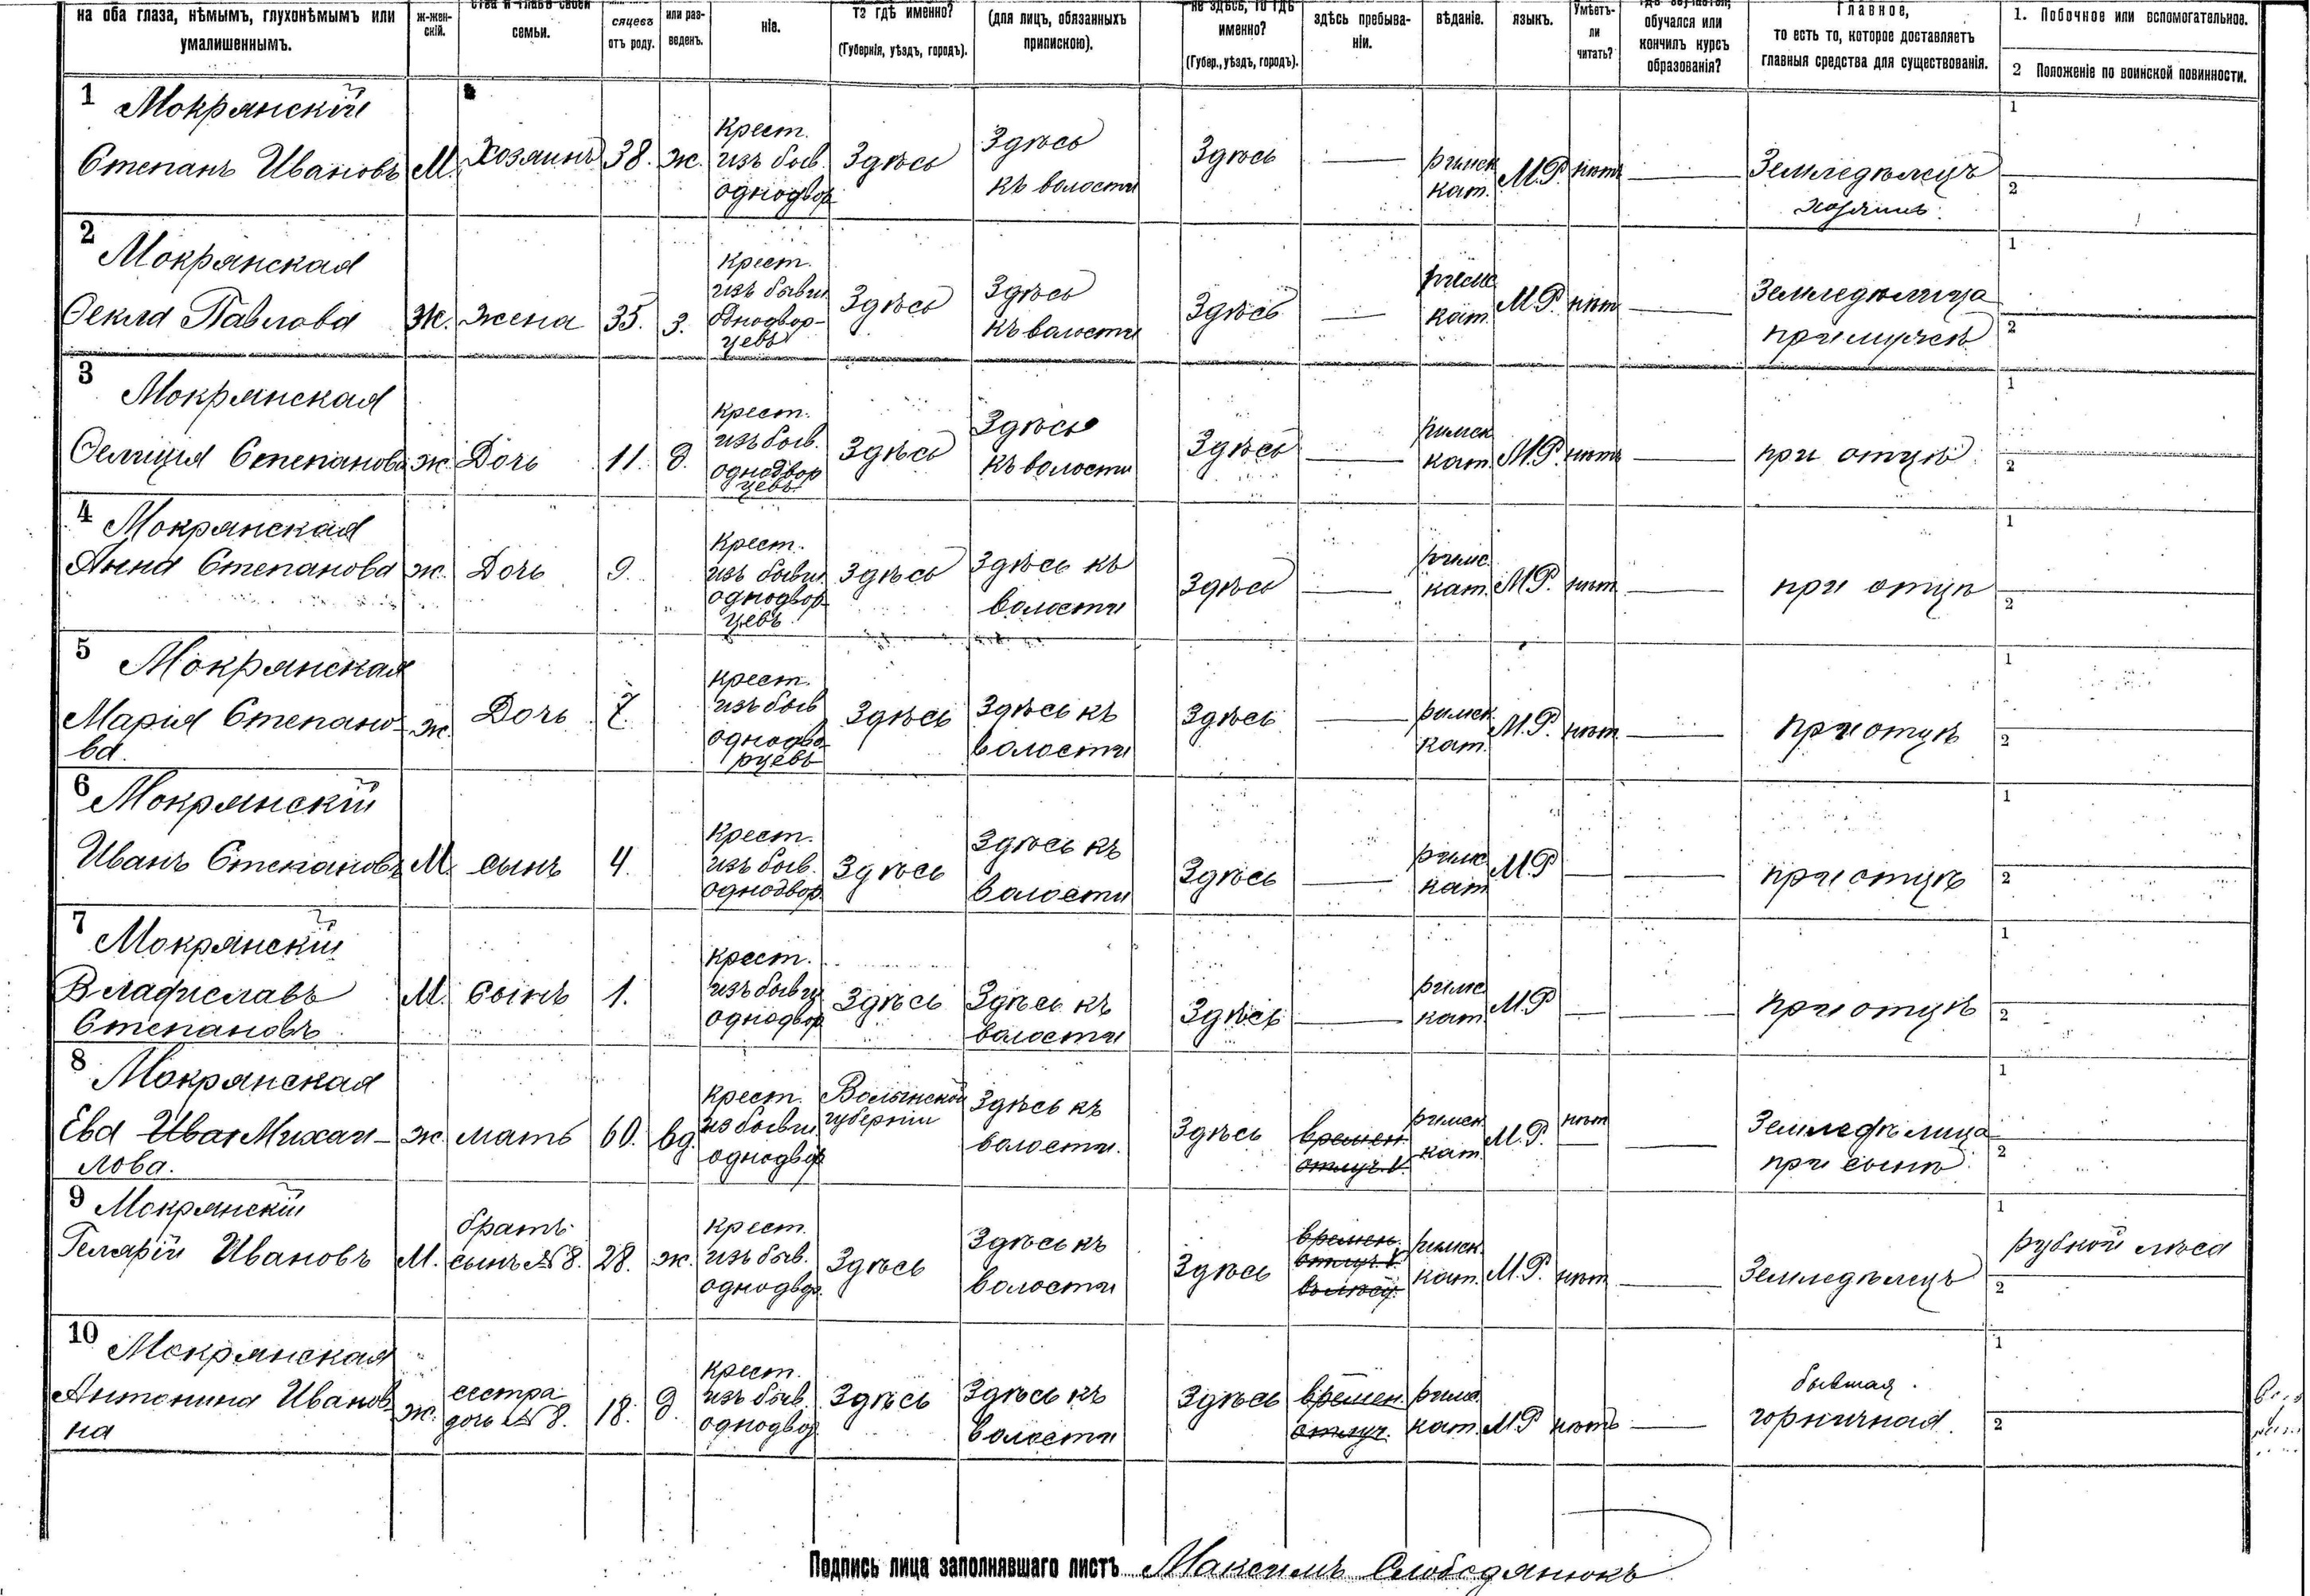 на оба глаза, нѣмымъ, глухонѣмымъ или умалишеннымъ.
ж-жен-скій.
семьи.
сяцевъ отъ роду.
или раз-веденъ.
нія.
та гдѣ именно?
(Губернія, уѣздъ, городъ).
(для лицъ, обязанныхъ припискою).
не здѣсь, то гдѣ именно?
(Губер., уѣздъ, городъ).
здѣсь пребыва-ніи.
вѣданіе.
языкъ.
Умѣетъ-ли читать?
гдѣ обучается, обучался или кончилъ курсъ образованія?
Главное,
то есть то, которое доставляетъ главныя средства для существованія.
1. Побочное или вспомогательное.
2 Положеніе по воинской повинности.
1 Мокрянскій
Степанъ Ивановъ М. Хозяинъ 38. ж. Крест. изъ быв. однодвор Здѣсь Здѣсь къ волости Здѣсь — римск кат. М.Р. нѣтъ — Земледѣлецъ хозяинъ.
1
2
2 Мокрянская
Текла Павлова Ж. жена 35. З. Крест. изъ бывш однодвор-цевъ Здѣсь Здѣсь къ волости Здѣсь — римск кат. М.Р. нѣт — Земледѣлица при мужѣ
1
2
3 Мокрянская
Фелиція Степанова ж. Дочь 11. д. Крест. изъ быв. однодвор цевъ Здѣсь Здѣсь къ волости Здѣсь — римск кат. М.Р. нѣтъ — при отцѣ
1
2
4 Мокрянская
Анна Степанова ж. Дочь 9. Крест. изъ бывш однодвор-цевъ Здѣсь Здѣсь къ волости Здѣсь — римс. кат. М.Р. нѣт — при отцѣ
1
2
5 Мокрянская
Марія Степано-ва. ж. Дочь 7. Крест. изъ быв однодво-рцевъ Здѣсь Здѣсь къ волости Здѣсь — римск кат. М.Р. нѣт — при отцѣ
1
2
6 Мокрянскій
Иванъ Степановъ М. сынъ 4. Крест. изъ быв. однодвор. Здѣсь Здѣсь къ волости Здѣсь — римс. кат М.Р — — при отцѣ
1
2
7 Мокрянскій
Владиславъ Степановъ М. Сынъ 1. Крест. изъ бывш однодвор Здѣсь Здѣсь къ волости Здѣсь — римс кат М.Р — — при отцѣ
1
2
8 Мокрянская
Ева Иван Михай-лова. ж. мать 60. вд. Крест. из бывш однодвор Волынской губерніи Здѣсь къ волости. Здѣсь времен. отлуч. римск кат. М.Р. нѣт — Земледѣлица при сынѣ
1
2
9 Мокрянскій
Гелярій Ивановъ М. братъ сынъ №8. 28. ж. Крест. изъ быв. однодвор. Здѣсь Здѣсь къ волости Здѣсь времен. отлуч. римск кат. М.Р. нѣт — Земледѣлецъ
1 рубкой лѣса
2
10 Мокрянская
Антонина Иванов-на ж. сестра дочь №8. 18. д. Крест. изъ быв. однодвор Здѣсь Здѣсь къ волости Здѣсь времен. отлуч. римс. кат. М.Р нѣтъ — бывшая горничная.
1
2
Подпись лица заполнявшаго листъ Максимъ Слободянюкъ